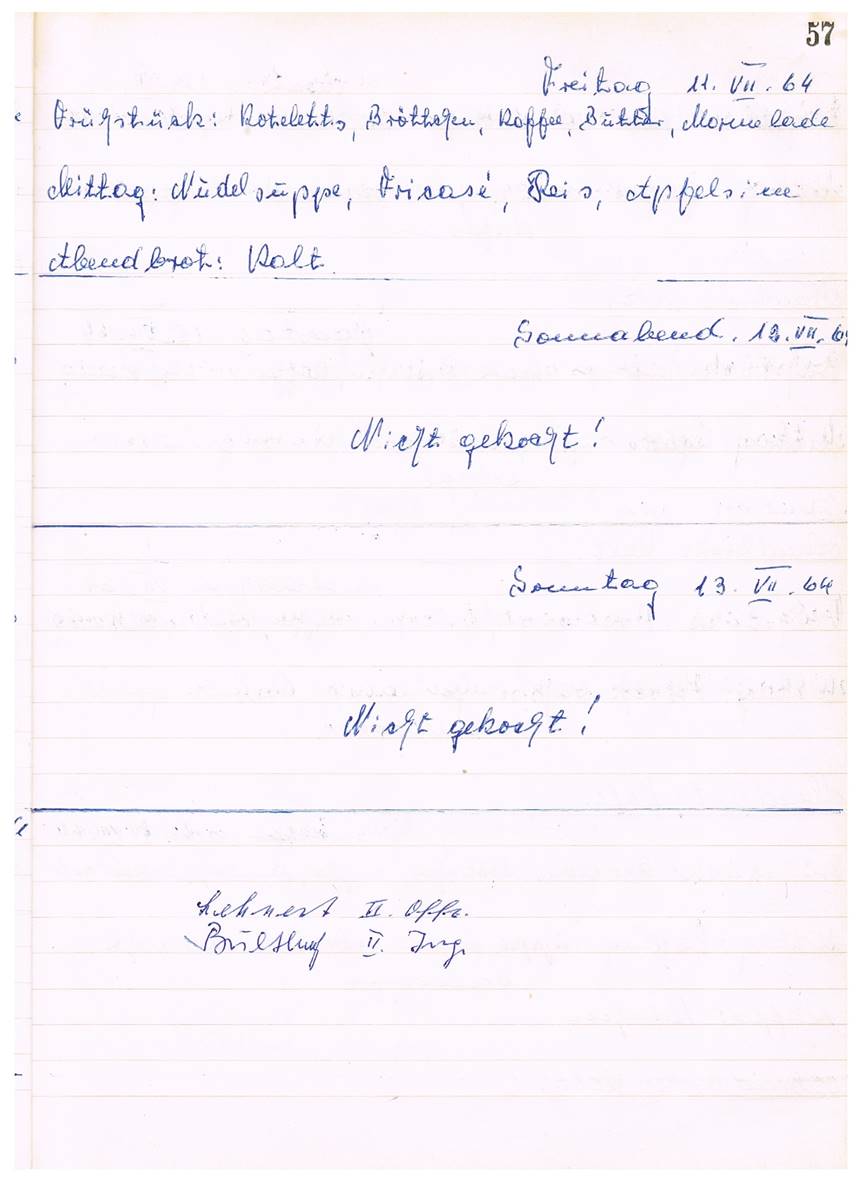 57
Freitag 11. VII. 64
Frühstück: Koteletts, Bröttchen, Kaffee, Butter, Marmelade
Mittag: Nudelsuppe, Fricasé, Reis, Apfelsine
Abendbrot: Kalt
Sonnabend. 12. VII. 64
Nicht gekocht!
Sonntag 13. VII. 64
Nicht gekocht!
Lehnert II. Offz.
II. Ing.